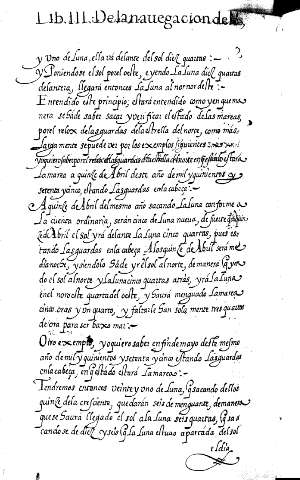 Lib. III. De la nauegacion del
y vno de Luna, ella va delante del sol diez quartas:
y Poniendose el sol por el oeste, e yendo la Luna diez quartas
delantera, llegará entonces la Luna al nornordeste:
Entendido este principio, estará entendido como y en que ma
nera se a de saber sacar y ver fixar el estado de las mareas,
por el relox de las guardas de la estrella del norte, como mas
largamente se puede ver por los exemplos siguientes
yo quiero saber por el relox de las guardas de la estrella del norte en que estado estará
La marea a quinze de Abril deste año de mil y quinientos y
setenta y cinco, estando Las guardas en la cabeça:
A quinze de Abril del mesmo año sacando La Luna conforme a
La cuenta ordinaria, seran cinco de Luna nueua, de suerte que a quin
ze de Abril el sol yrá delante La Luna cinco quartas, pues es
tando Las guardas en la cabeça A los quinze de Abril será me
dia noche, y siendo lo a de yr el sol al norte, de manera que yen
do el sol al norte y La Luna cinco quartas atras, yrá La Luna
en el noroeste quarta del oeste, y haurá menguado La marea
cinco oras y vn quarto, y faltarle han sola mente tres quartos
de ora para ser baxa mar:
Otro exemplo, yo quiero saber en fin de mayo deste mesmo
año de mil y quinientos y setenta y cinco estando Las guardas
en la cabeça, en que estado estará La marea:
Tendremos entonces veinte y vno de Luna, que sacando dellos
quinze de la creciente, quedarán seis de menguante, de manera
que se haurá llegado el sol a la Luna seis quartas, que sa
cando se de diez y seis que la Luna estuuo aparcada del sol
el dia